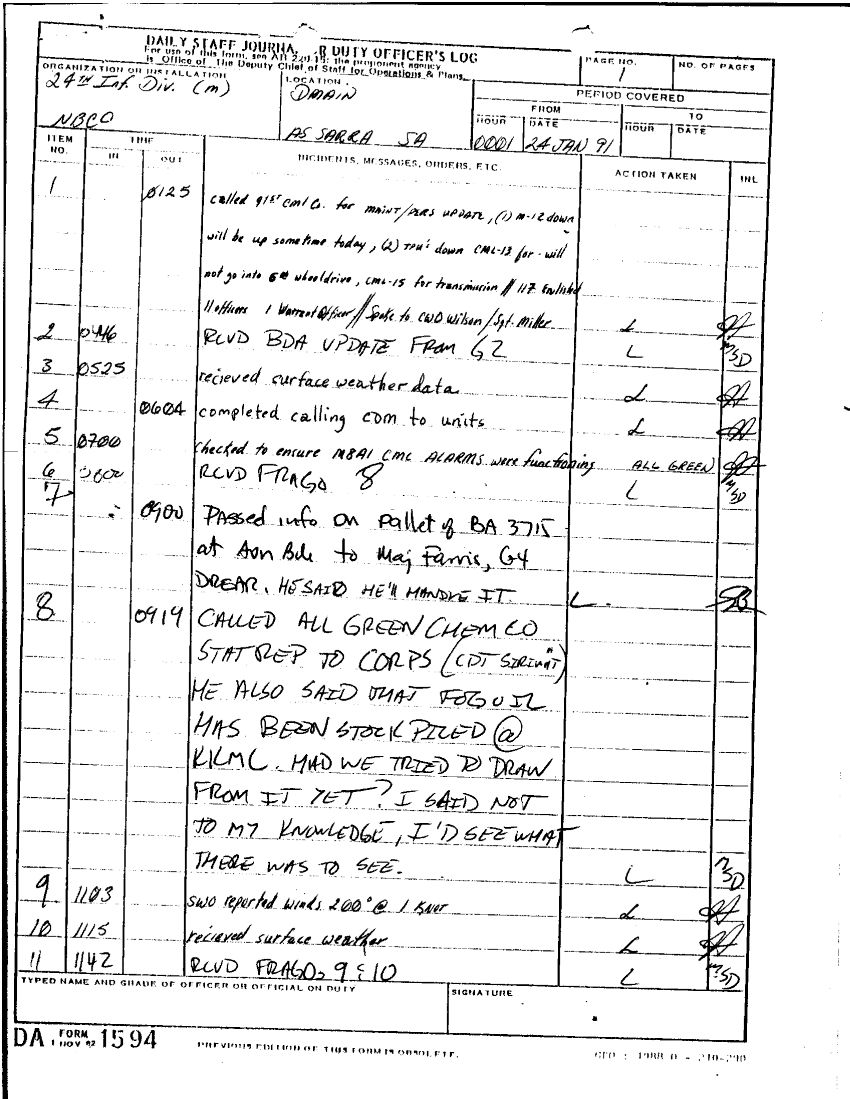 DAILY STAFF JOURNAL OR DUTY OFFICER'S LOG
For use of this form, see AR 220-15; the proponent agency
is Office of The Deputy Chief of Staff for Operations & Plans.
PAGE NO.
1
NO. OF PAGES
ORGANIZATION OR INSTALLATION
24TH Inf. Div. (m)
NBCO
LOCATION
DMAIN
AS SARRA SA
PERIOD COVERED
FROM
TO
HOUR DATE
HOUR DATE
0001 24 JAN 91
ITEM NO.
TIME
IN OUT
INCIDENTS, MESSAGES, ORDERS, ETC.
ACTION TAKEN
INL
1 0125 called 91st cml Co. for MAINT/PERS UPDATE, (1) M-12 down
will be up sometime today, (2) TPU's down CML-13 for - will
not go into 6th wheeldrive, CML-15 for transmission // 117 Enlisted
11 officers 1 Warrant Officer // Spoke to CWO Wilson/Sgt. Miller L
2 0446 RCVD BDA UPDATE FROM G2 L MSD
3 0525 recieved surface weather data L
4 0604 completed calling CDM to units L
5 0700 checked to ensure M8A1 CML ALARMS were functioning ALL GREEN
6 0800 RCVD FRAGO 8 L MSD
7 0900 Passed info on pallet of BA 3715
at Bde to Maj Farris, G4
DREAR. HE SAID HE'LL HANDLE IT. L.
8 0919 CALLED ALL GREEN CHEM CO
STATREP TO CORPS (CDT )
HE ALSO SAID THAT FOG OIL
HAS BEEN STOCK PILED @
KKMC. HAD WE TRIED TO DRAW
FROM IT YET? I SAID NOT
TO MY KNOWLEDGE, I'D SEE WHAT
THERE WAS TO SEE. L MSD
9 1103 SWO reported winds 200° @ 1 KNOT L
10 1115 recieved surface weather L
11 1142 RCVD FRAGOs 9 & 10 L MSD
TYPED NAME AND GRADE OF OFFICER OR OFFICIAL ON DUTY
SIGNATURE
DA FORM 1 NOV 62 1594
PREVIOUS EDITION OF THIS FORM IS OBSOLETE.
GPO : 1988 O - 210-290